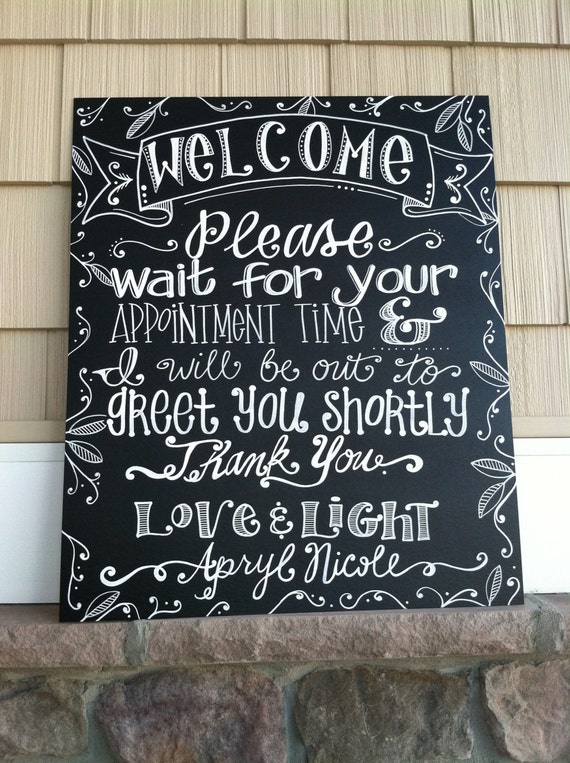 WELCOME
Please
wait for your
APPOINTMENT TIME &
I will be out to
GREET YOU SHORTLY
Thank You.
LOVE & LIGHT
Apryl Nicole